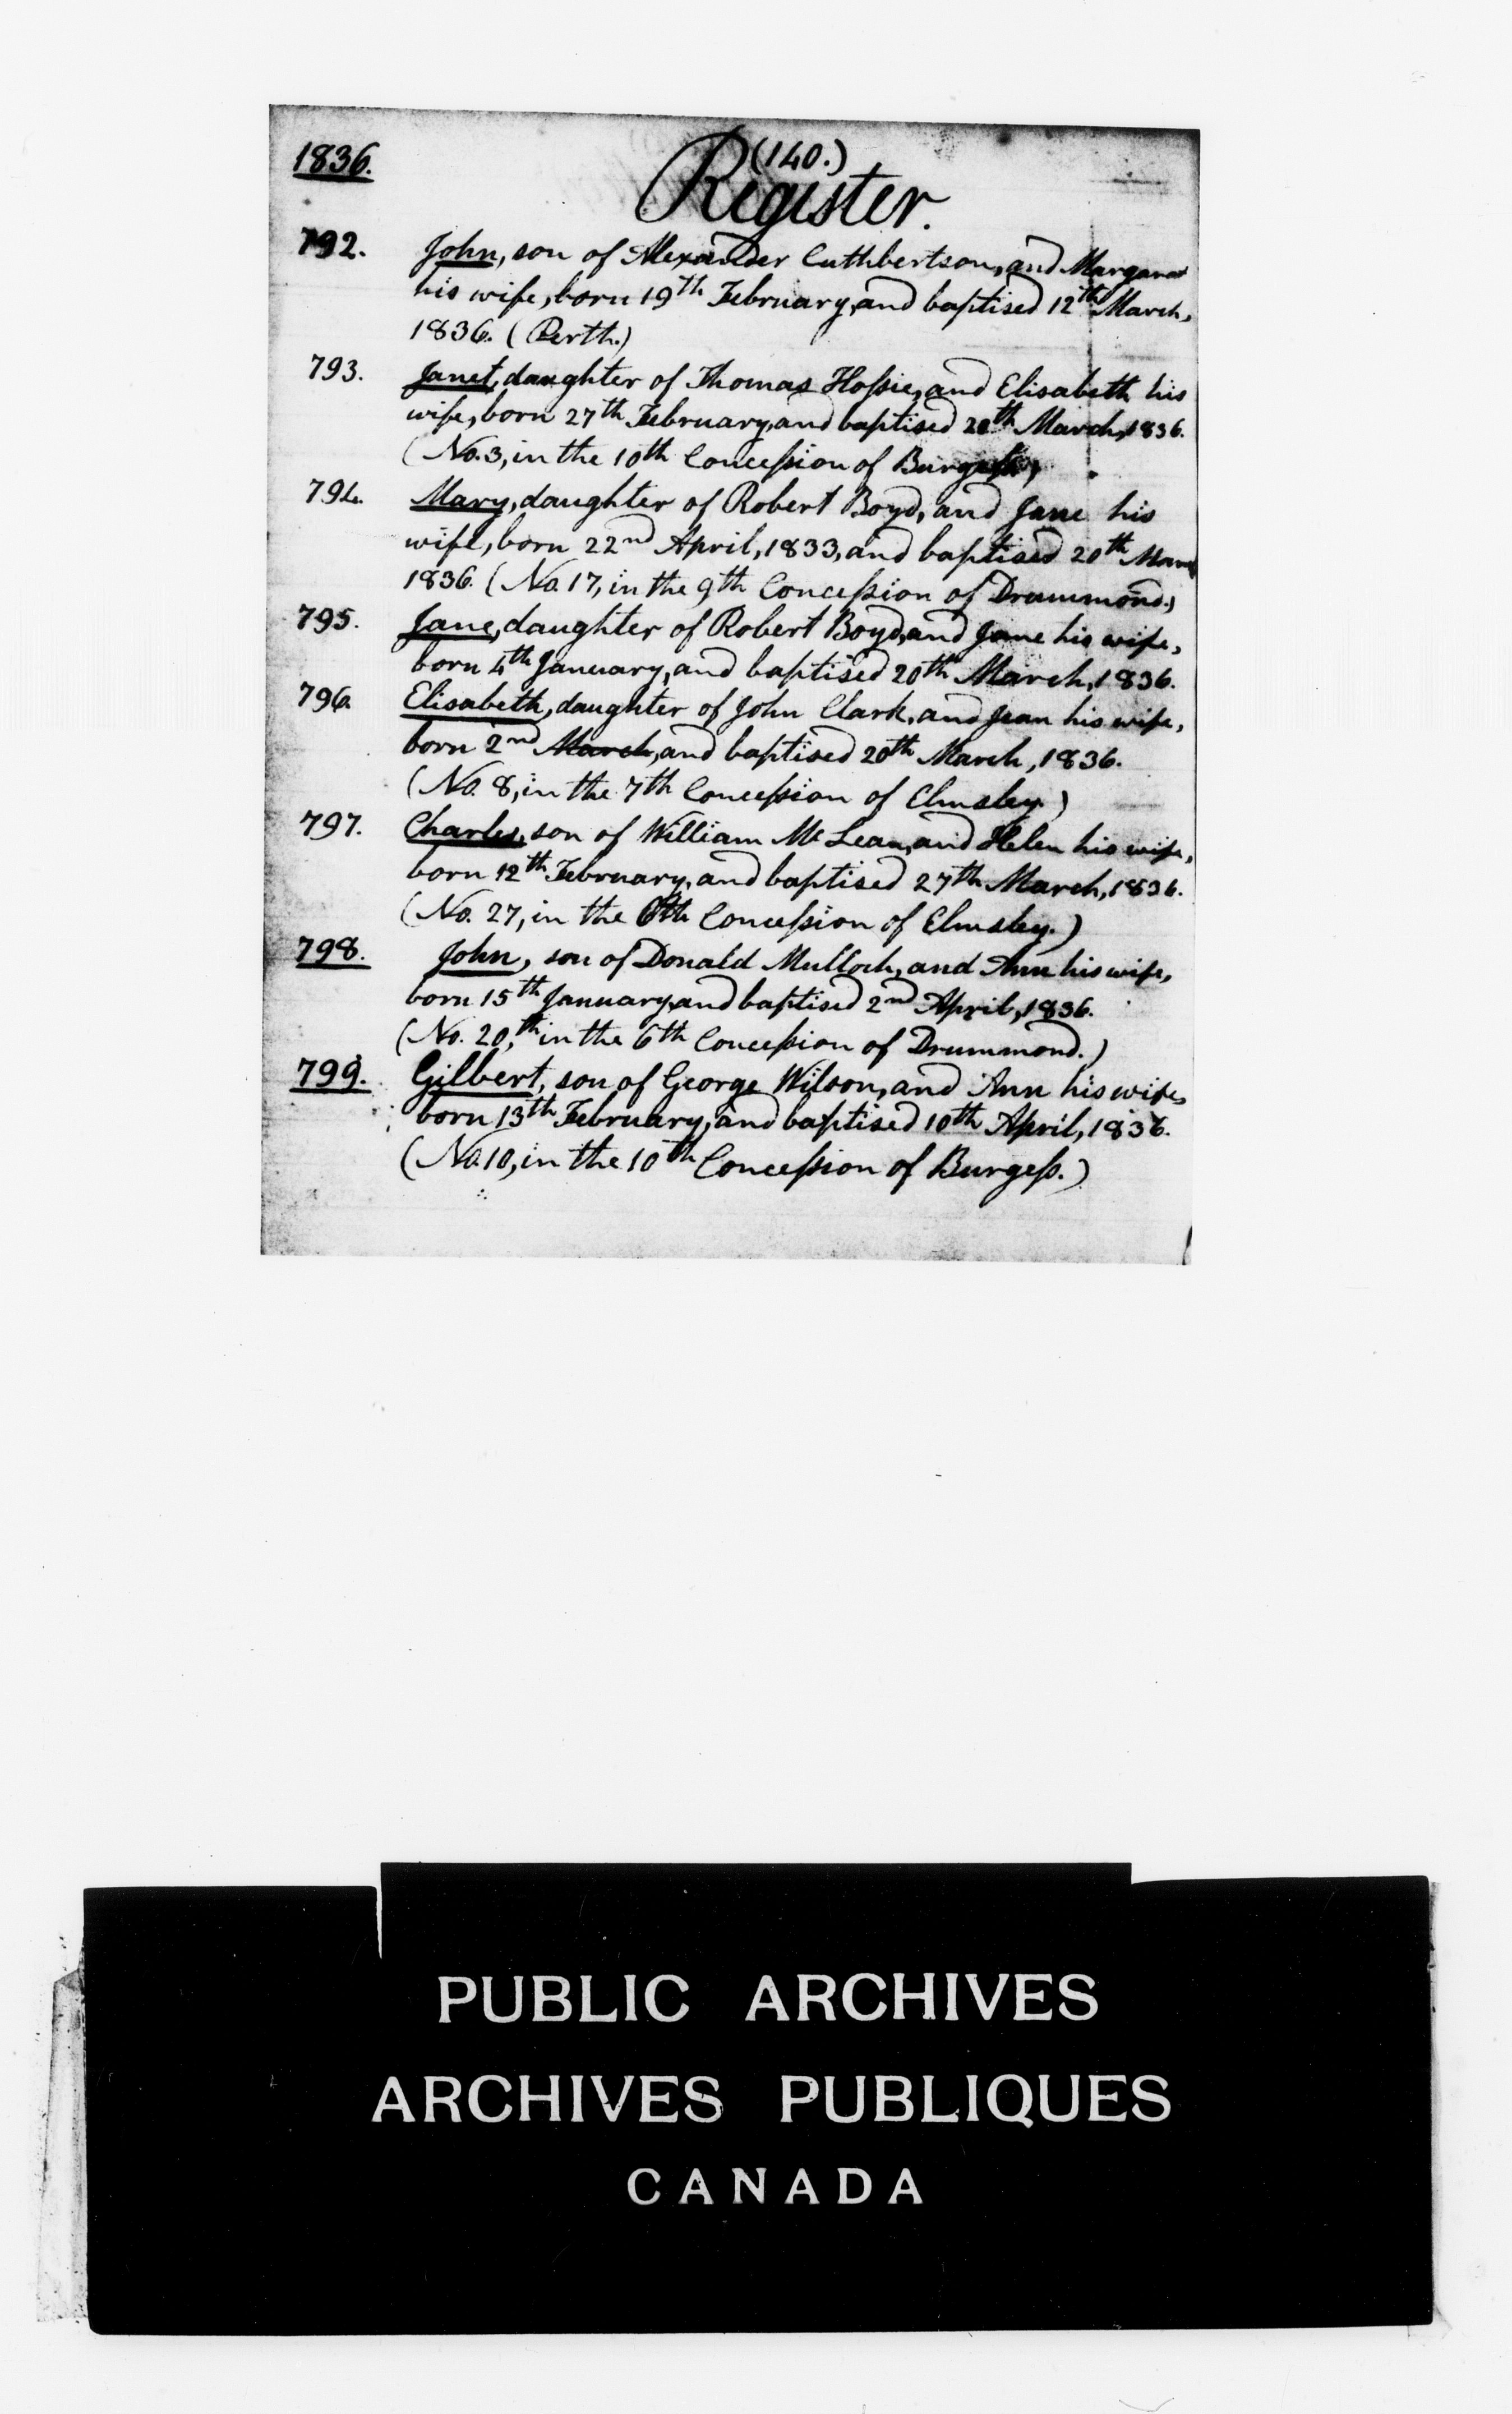 1836.
(140.)
Register.
792. John, son of Alexander Cuthbertson, and Margaret
his wife, born 19th February, and baptised 12th March,
1836. (Perth.)
793. Janet, daughter of Thomas Hossie, and Elisabeth his
wife, born 27th February, and baptised 20th March, 1836.
(No. 3, in the 10th Concession of Burgess.)
794. Mary, daughter of Robert Boyd, and Jane his
wife, born 22nd April, 1833, and baptised 20th March
1836. (No. 17, in the 9th Concession of Drummond.)
795. Jane, daughter of Robert Boyd, and Jane his wife,
born 4th January, and baptised 20th March, 1836.
796. Elisabeth, daughter of John Clark, and Jean his wife,
born 2nd March, and baptised 20th March, 1836.
(No. 8, in the 7th Concession of Elmsley.)
797. Charles, son of William McLean, and Helen his wife,
born 12th February, and baptised 27th March, 1836.
(No. 27, in the 6th Concession of Elmsley.)
798. John, son of Donald Mulloch, and Ann his wife,
born 15th January, and baptised 2nd April, 1836.
(No. 20,th in the 6th Concession of Drummond.)
799. Gilbert, son of George Wilson, and Ann his wife,
born 13th February, and baptised 10th April, 1836.
(No. 10, in the 10th Concession of Burgess.)
PUBLIC ARCHIVES
ARCHIVES PUBLIQUES
CANADA